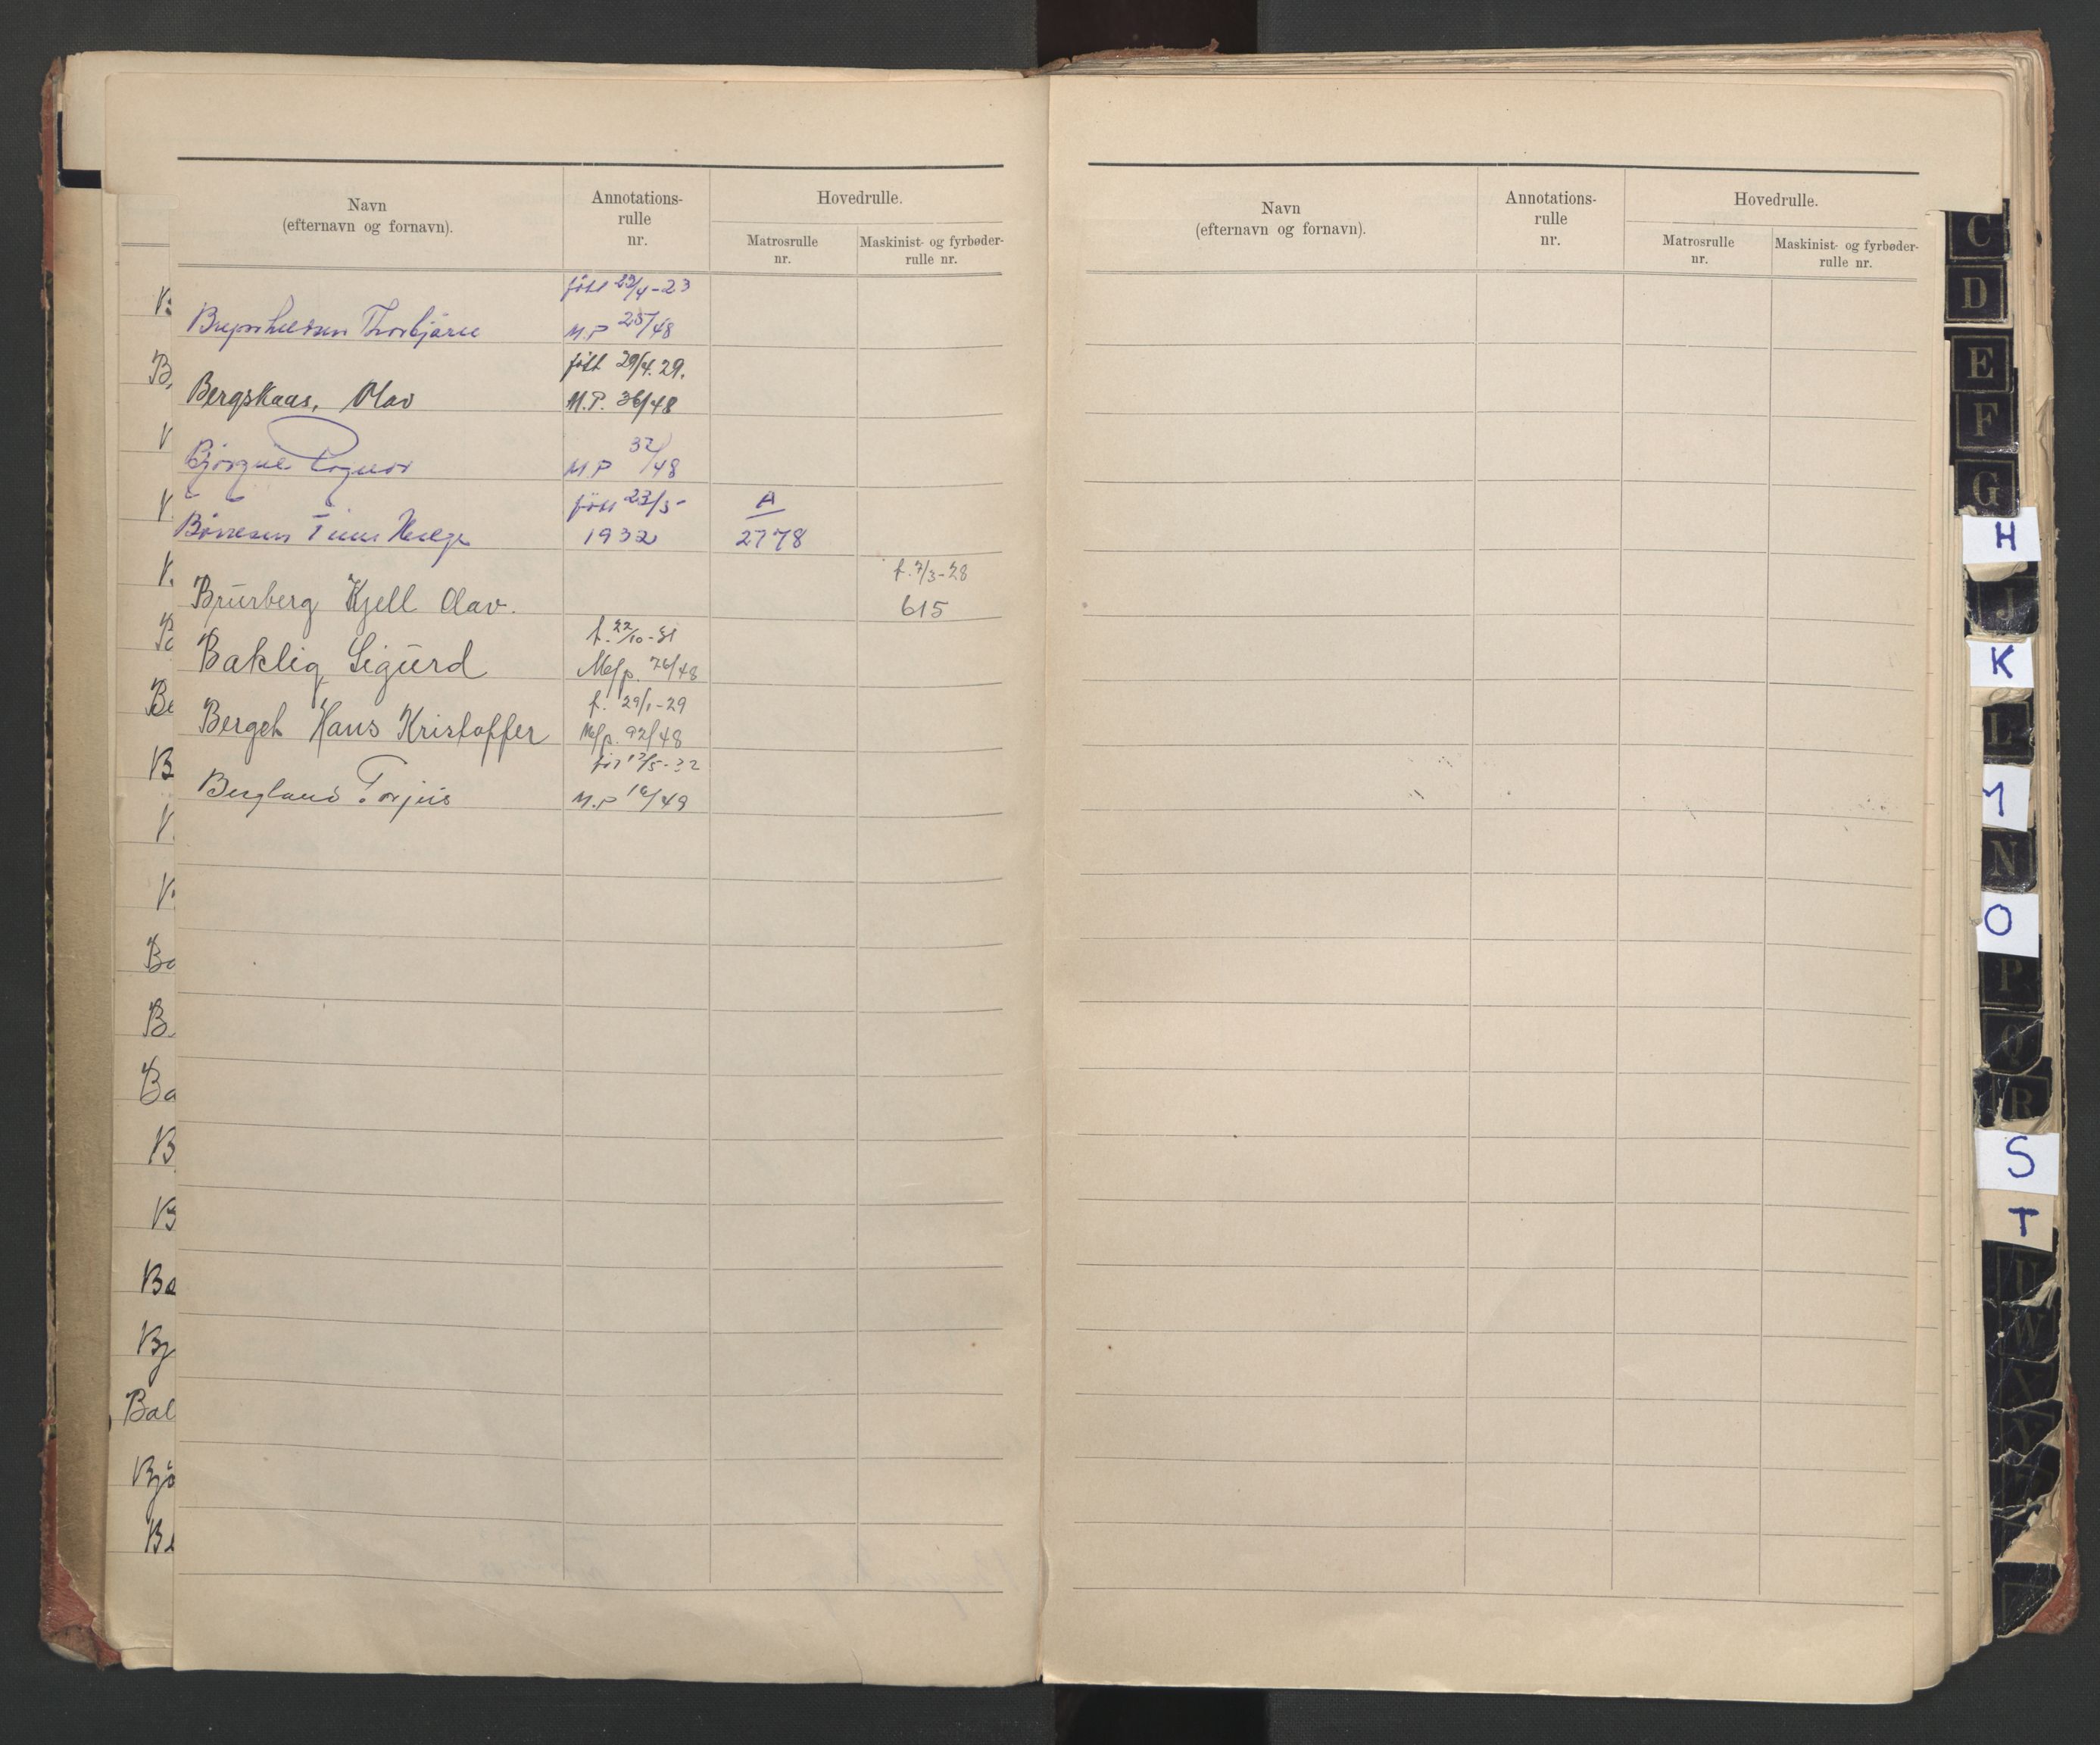 Navn
(efternavn og fornavn).
Annotations-
rulle
nr.
Hovedrulle.
Matrosrulle
nr.
Maskinist- og fyrbøder-
rulle nr.
født 23/4-23
Thorbjørn
M.P 25/48
født 29/4.29.
Bergskaas, Olav
M.P. 36/48
32/48
M.P
født 23/5-
A
Børresen Helge
1932
2778
f. 7/3-28
Brürberg Kjell Olav.
615
f. 22/10-31
Baklig Sigürd
M/p. 76/48
f. 29/1-29
Berget Hans Kristoffer
M/p. 92/48
12/5-32
Bergland Torjus
M.P 16/49
B
B
Be
B
Ba
B
Ba
B
B
Ba
Bj
Bal
Bjö
Be
Navn
(efternavn og fornavn).
Annotations-
rulle
nr.
Hovedrulle.
Matrosrulle
nr.
Maskinist- og fyrbøder-
rulle nr.
C
D
E
F
G
H
J
K
L
M
N
O
P
Q
R
S
T
U
W
X
Y